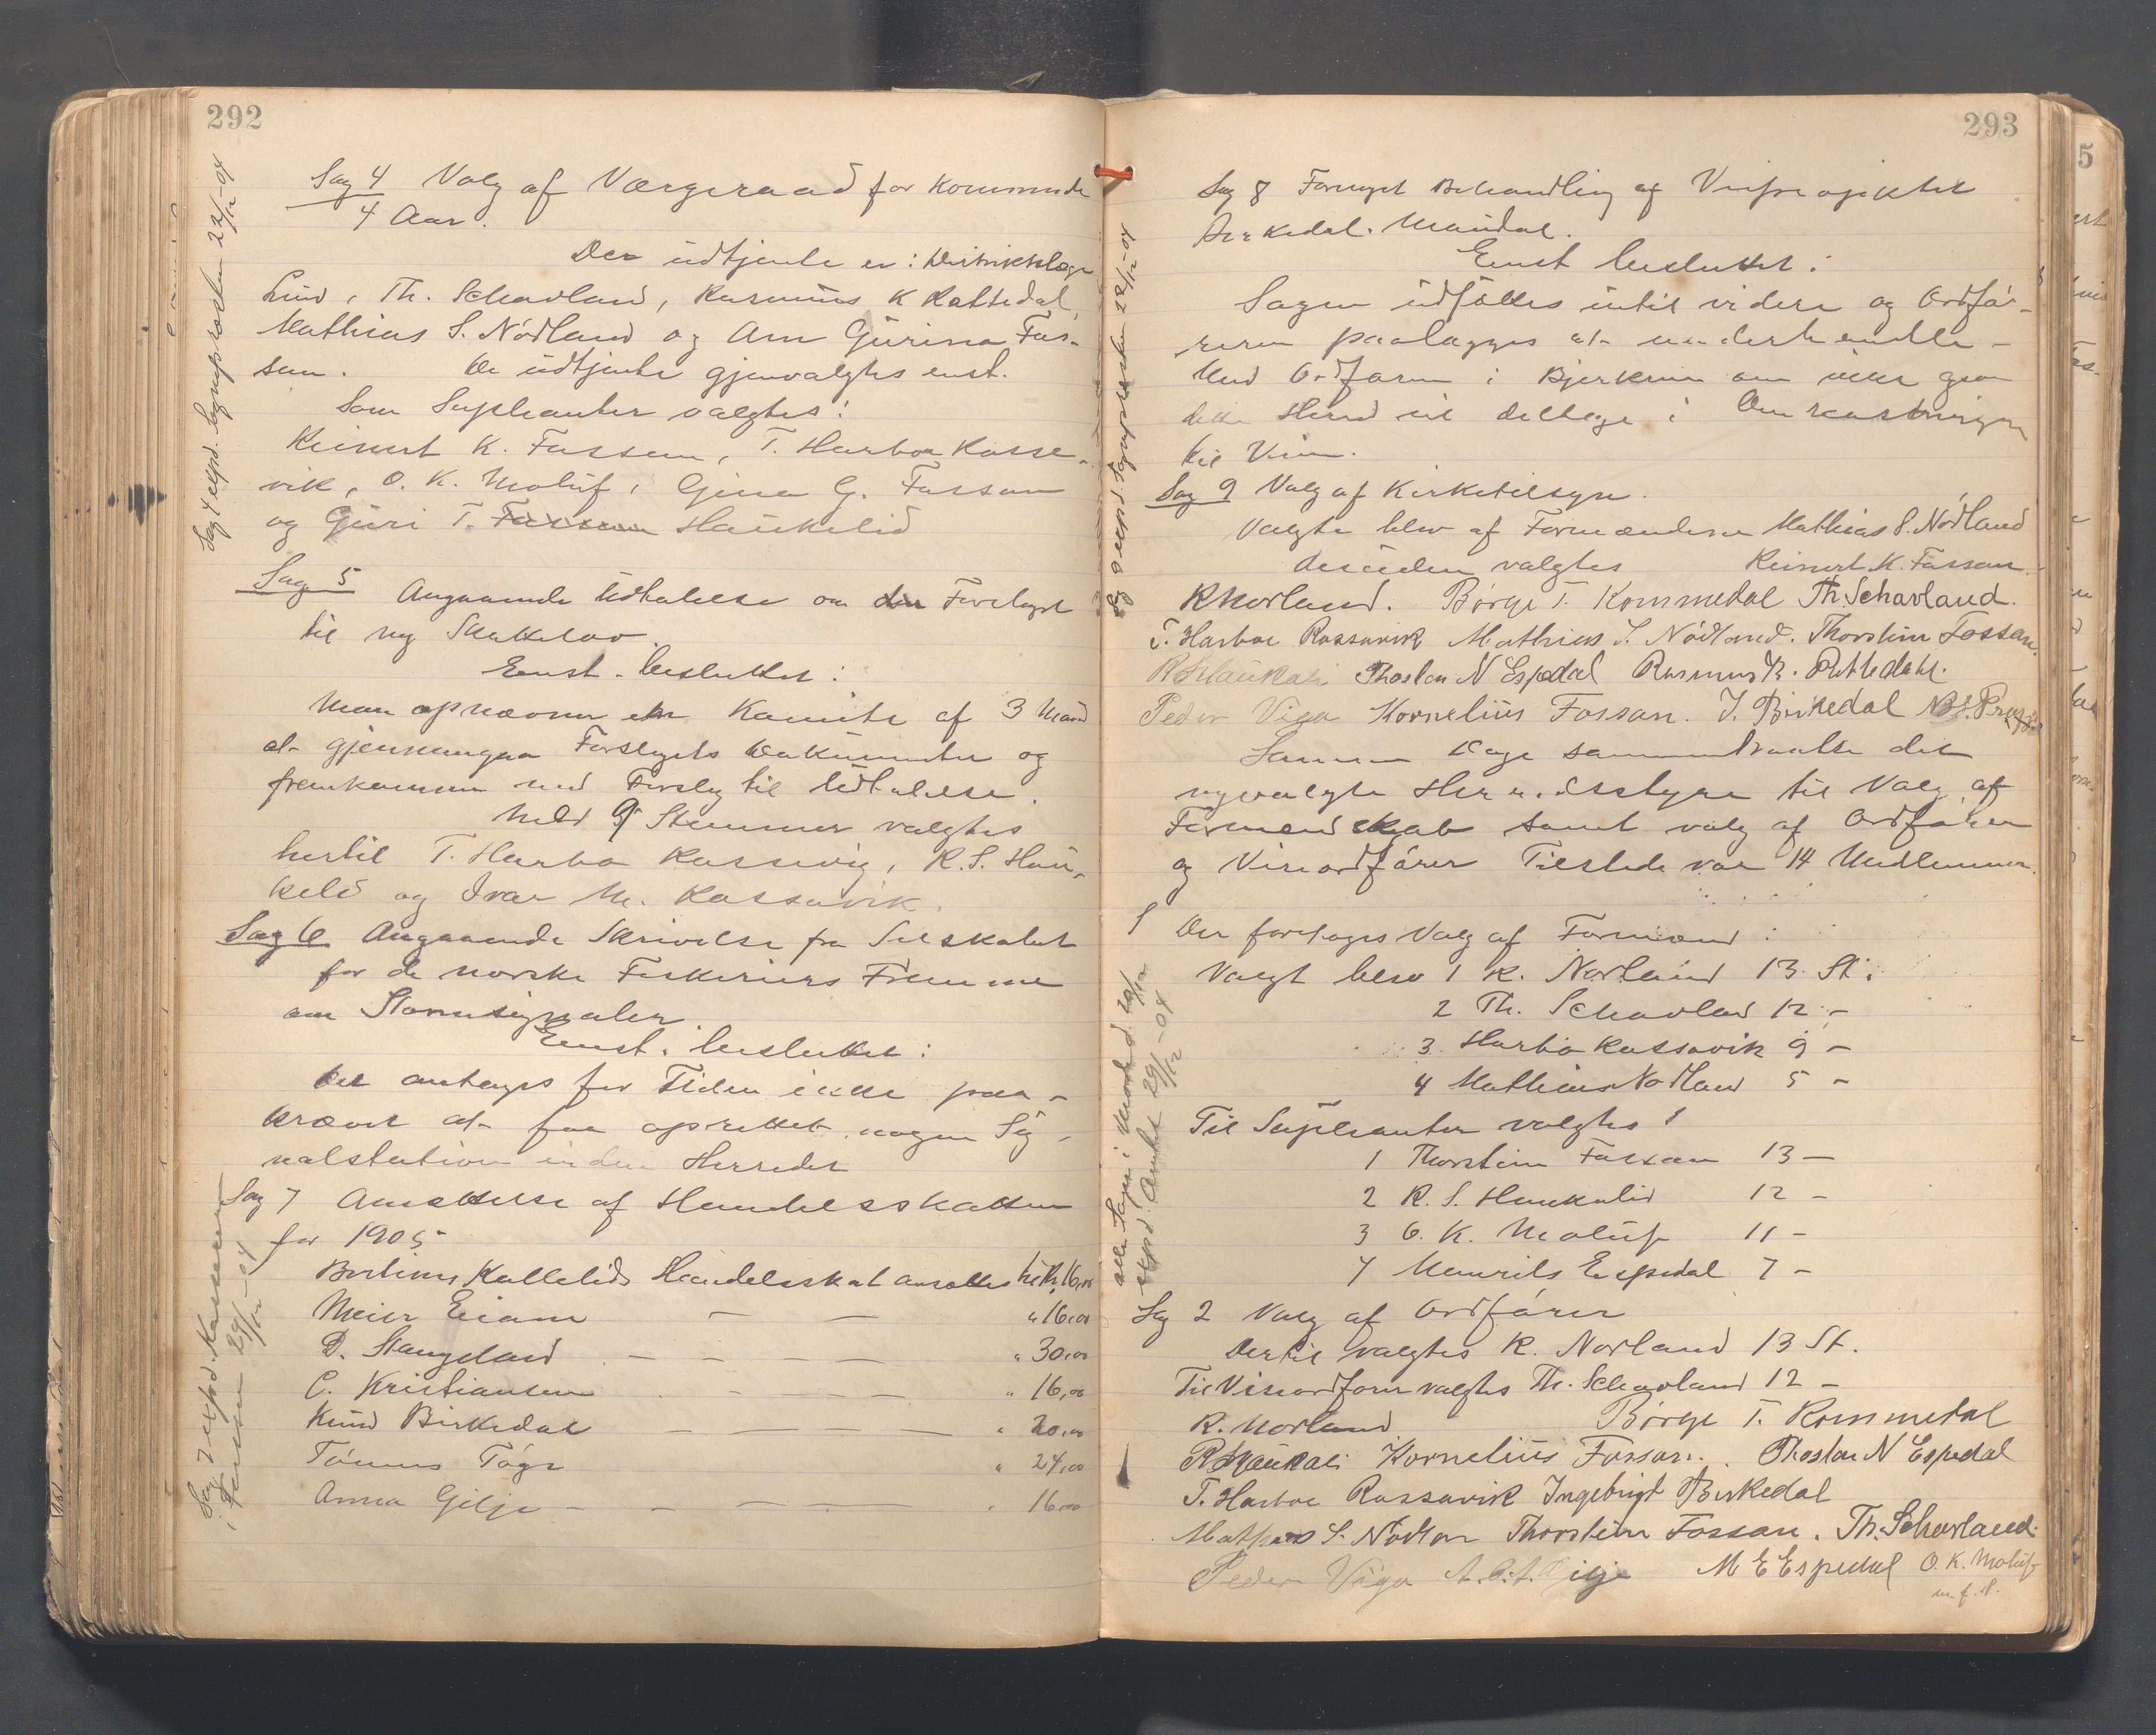 292
Sag 4 Valg af Værgeraad for kommende
4 Aar.
De udtjente er: Distriktslæge
Lund, Th. Schavland, Rasmus K Rettedal,
Mathias S. Nødland og Ane Gurina Fos-
san. De udtjente gjenvalgtes enst.
Som Supleanter valgtes:
Reinert K. Fossan, T. Harboe Rosse-
vik, O. K. Moluf, Gina G. Fossan
og Guri T. Fossan Haukelid
Sag 5 Angaaende Udtalelse om den Forslaget
til ny Skattelov.
Enst. besluttet:
Man opnævner en Komite af 3 Mænd
at gjennemgaa Forslagets Dokumenter og
fremkomme med Forslag til Udtalelse.
Med 9 Stemmer valgtes
hertil T. Harboe Rossavig, R. S. Hau-
kelid og Ivar M. Rossavik.
Sag 6 Angaaende Skrivelse fra Selskabet
for de norske Fiskeriers Fremme
om Stormsignaler.
Enst. besluttet:
Det antages for Tiden ikke paa-
krævet at faa oprettet nogen Sig-
nalstation inden Herredet
Sag 7 Ansættelse af Handelsskatten
for 1905
Kallelids Handelsskat ansattes til Kr. 16,00
Meier Eiane — — " 16,00
D. Stangeland — — — — " 30,00
C. Kristiansen — — — — " 16,00
Knud Birkedal — — — — — " 20,00
Tønnes Tøgr " 24,00
Anna Gilje — — — — " 16,00
Sag 4 expd. Sogneprosten 22/12-04
Sag 7 expd. Kassereren
i Forsan 29/12-04
293
Sag 8 Fornyet Behandling af Veiprojektet
Birkedal-Maudal.
Enst besluttet:
Sagen udsættes intil videre og Ordfø-
reren paalægges at underhandle
med Ordføreren i Bjerkrem om
dette Herred vil deltage i Omkostningen
til Veien.
Sag 9 Valg af Kirketilsyn.
Valgte blev af Formændene Mathias S. Nødland
desuden valgtes Reinert K. Fossan.
R Norland. Børge T. Kommedal Th. Schavland.
T. Harboe Rossavik Mathias S. Nødland. Thorstein Fossan.
R S Haukali Thosten N Espedal Rasmus K. Rettedahl.
Peder Viga Kornelius Fossan. I. Birkedal
Samme Dage sammentraadte det
nyvalgte Herredsstyre til Valg af
Formandskab samt valg af Ordfører
og Viseordfører Tilstede var 14 Medlemmer.
1 Der foretoges Valg af Formænd:
Valgt blev 1 R. Norland 13 St.
2 Th. Schavland 12 —
3 Harboe Rossavik 9 —
4 Mathias Nødland 5 —
Til Supleanter valgtes:
1 Thorstein Fossan 13 —
2 R. S. Haukalid 12 —
3 O. K. Moluf 11 —
4 Mauritz Espedal 7 —
Sag 2 Valg af Ordfører
Dertil valgtes R. Norland 13 St.
Til Viseordfører valgtes Th. Schavland 12 —
R. Norland Børge T. Kommedal
R S Haukali Kornelius Fossan. Thosten N Espedal
T. Harboe Rossavik Ingebrigt Birkedal
Mathias S. Nødlan Thorstein Fossan. Th. Schavland.
Peder Viga A. A. Gilje M E Espedal O. K. Moluf
m. f. P.
expd. Amtet 29/12-04